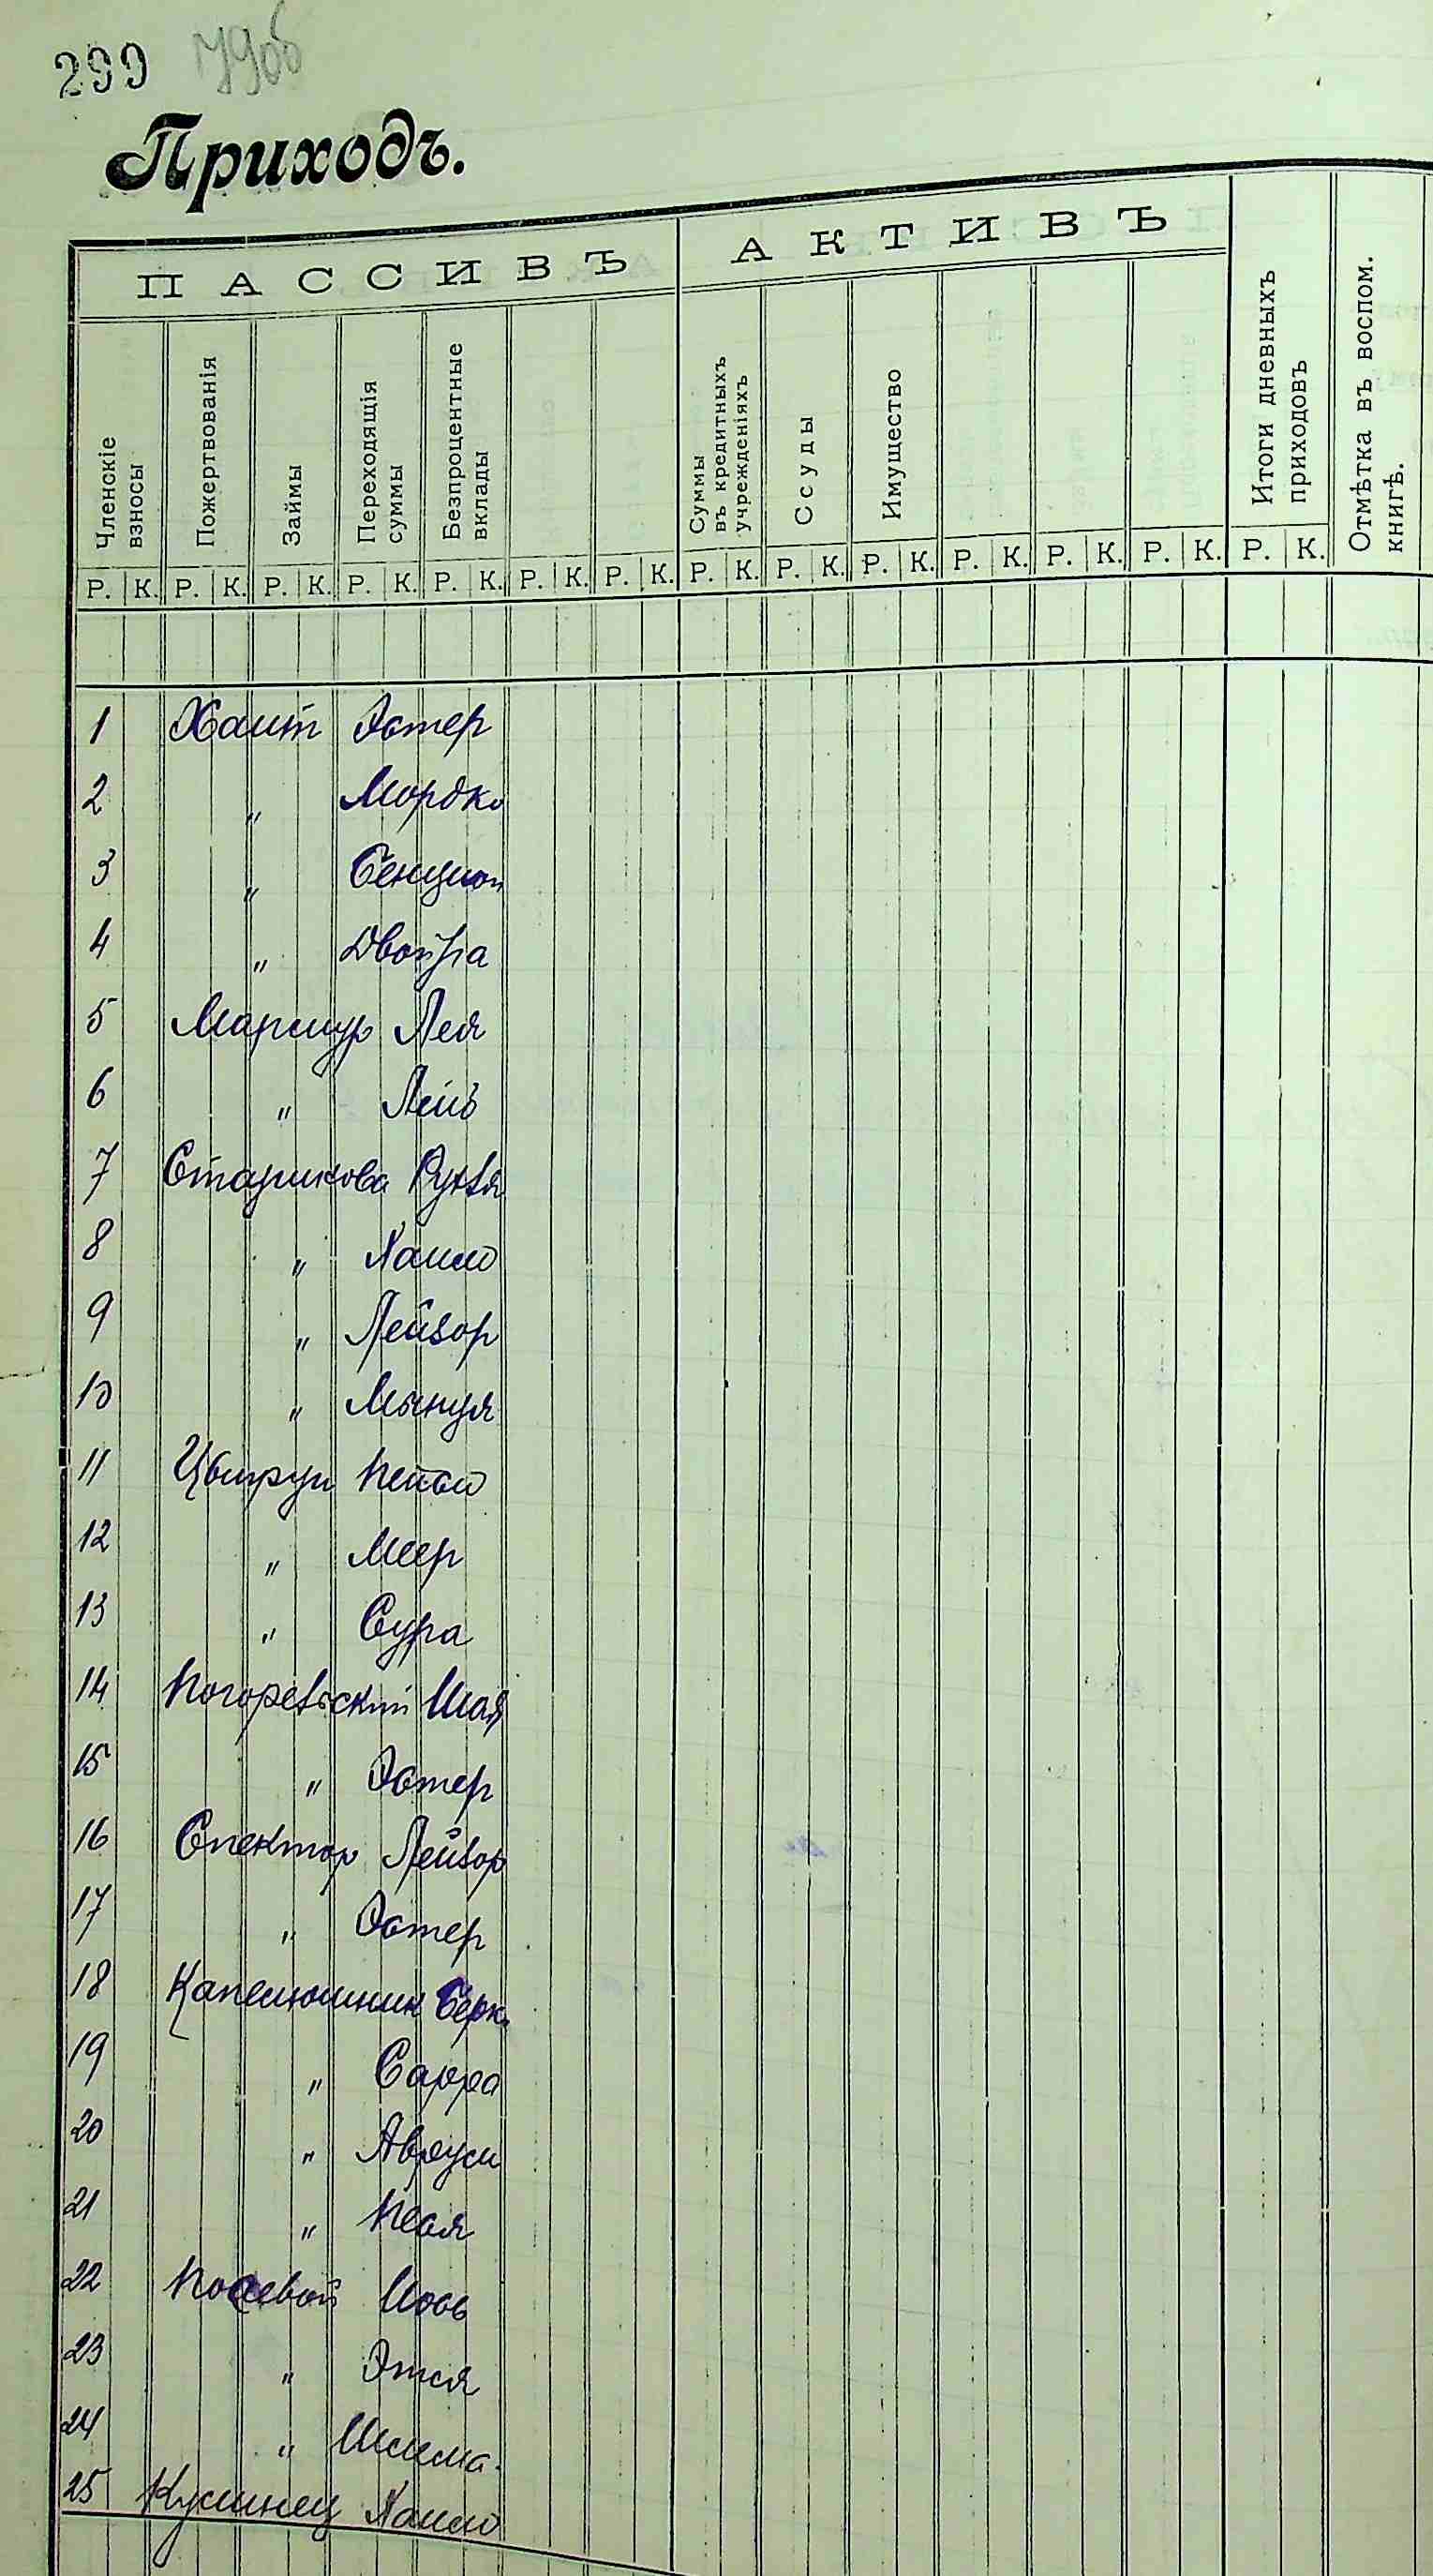 299 790б
Приходъ.
ПАССИВЪ АКТИВЪ
Членскіе взносы
Пожертвованія
Займы
Переходящія суммы
Безпроцентные вклады
Суммы въ кредитныхъ учрежденіяхъ
Ссуды
Имущество
Итоги дневныхъ приходовъ
Отмѣтка въ воспом. книгѣ.
Р. К. Р. К. Р. К. Р. К. Р. К. Р. К. Р. К. Р. К. Р. К. Р. К. Р. К. Р. К. Р. К. Р. К.
1 Хаит Эстер
2 " Мордко
3 " Бенцион
4 " Двойра
5 Маршур Лея
6 " Лейб
7 Старикова Рухля
8 " Хаим
9 " Лейзор
10 " Мынця
11 Цвирун
12 " Меер
13 " Сура
14 Погорельский Шая
15 " Эстер
16 Спектор Лейзор
17 " Эстер
18 Капелюшник Берк.
19 " Сарра
20 " Аврум
21 " Песя
22 Посевой Иось
23 " Этся
24 " Шлима
25 Кушнец Хаим